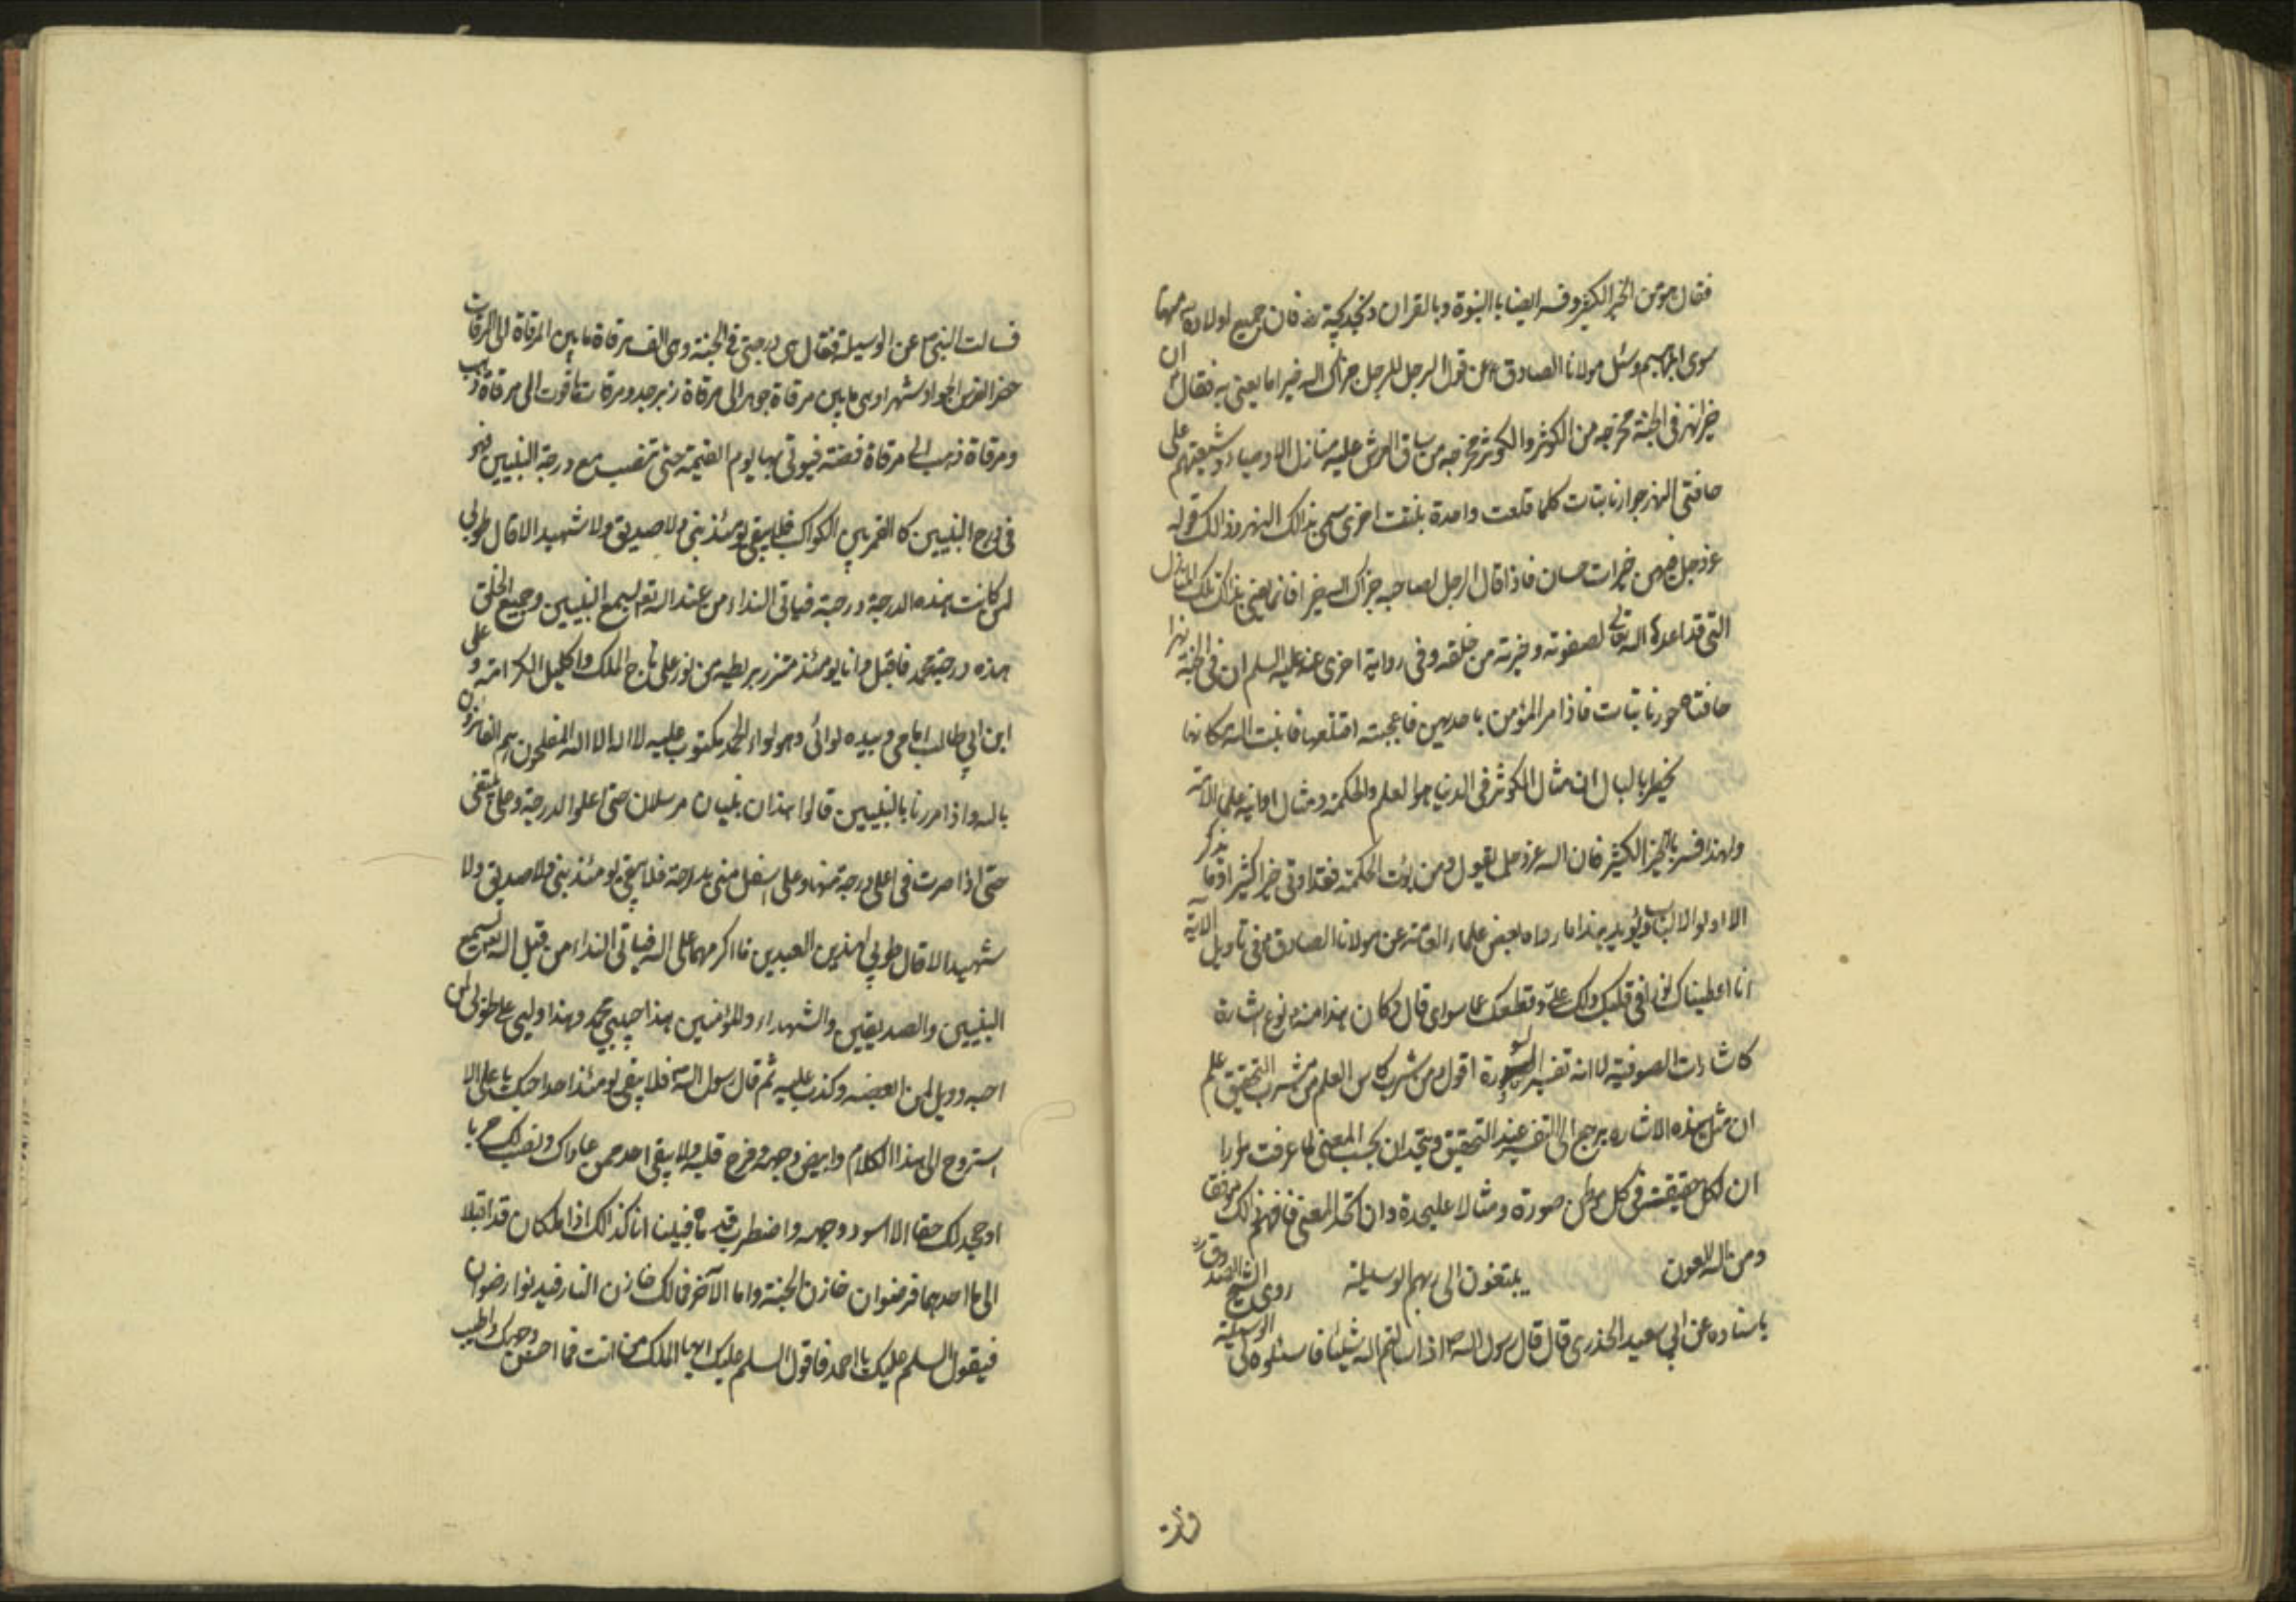 فقال هو من الخير الكثير وفسر ايضا بالنبوة وبالقران وبخديجة رضـ فان جميع اولاده ص منها
سوى ابراهيم وسئل مولانا الصادق ع عن قول الرجل للرجل جزاك الله خيرا ما يعنى به فقال ع ان
خيرا نهر فى الجنة مخرجه من الكوثر والكوثر مخرجه من ساق العرش عليه منازل الاوصياء وشيعتهم على
حافتى النهر جوار نابتات كلما قلعت واحدة نبتت اخرى سمى بذالك النهر وذالك قوله
عز وجل فيهن خيرات حسان فاذا قال الرجل لصاحبه جزاك الله خيرا فانما يعنى بذالك تلك المنازل
التى قد اعدها الله تعالى لصفوته وخيرته من خلقه وفى رواية اخرى عنه عليه السلم ان فى الجنة نهرا
حافتاه حور نابتات فاذا مر المؤمن باحديهن فاعجبته اقتلعها فانبت الله مكانها
يخطر بالبال ان مثال الكوثر فى الدنيا هو العلم والحكمة ومثال اوانيه علماء الامة
ولهذا فسر بالخير الكثير فان الله عز وجل يقول ومن يؤت الحكمة فقد اوتى خيرا كثيرا وما يذكر
الا اولوا الالباب ويؤيد هذا ما رواه بعض علماء العامة عن مولانا الصادق ع فى تاويل الاية
انا اعطيناك نورا فى قلبك دلك على وقطعك عما سواى قال وكان هذا منه نوع اشارة
كاشارات الصوفية لا انه تفسير للسورة اقول ومن شرب كاس العلم من مشرب التحقيق علم
ان مثل هذه الاشاره يرجع الى التفسير عند التحقيق ويتحدان بحسب المعنى لما عرفت مرارا
ان لكل حقيقة فى كل موطن صورة ومثالا عليحدة وان اتحد المعنى فافهم ذلك موفقا
ومن الله العون يبتغون الى ربهم الوسيلة روى الشيخ الصدوق ره
باسناده عن ابي سعيد الخدرى قال قال رسول الله ص اذا سالتم الله شيئا فاسئلوه لى الوسيلة
فسالت النبى ص عن الوسيلة فقال هى درجتى فى الجنة وهى الف مرقاة ما بين المرقاة الى المرقات
حضر الفرس الجواد شهرا وهى ما بين مرقاة جوهر الى مرقاة زبرجد ومرقات ياقوت الى مرقاة ذهب
ومرقاة ذهب الى مرقاة فضة فيوتى بها يوم القيمة حتى تنصب مع درجة النبيين فهى
فى درج النبيين كالقمر بين الكواكب فلا يبقى يومئذ نبى ولا صديق ولا شهيد الا قال طوبى
لمن كانت هذه الدرجة درجته فياتى النداء من عند الله تعـ ليسمع النبيين وجميع الخلق
هذه درجة محمد فاقبل وانا يومئذ متزر بريطة من نور على تاج الملك واكليل الكرامة و على
ابن ابى طالب امامى وبيده لوائى وهو لواء الحمد مكتوب عليه لا اله الا الله المفلحون هم الفائزون
بالله واذا مررنا بالنبيين قالوا هذان نبيان مرسلان حتى اعلوا الدرجة وعلى يتبعنى
حتى اذا صرت فى اعلى درجة منها وعلى اسفل منى بدرجة فلا يبقى يومئذ نبى ولا صديق ولا
شهيد الا قال طوبى لهذين العبدين ما اكرمهما على الله فياتى النداء من قبل الله تعـ يسمع
النبيين والصديقين والشهداء والمؤمنين هذا حبيبى محمد وهذا وليى على طوبى لمن
احبه وويل لمن ابغضه وكذب عليه ثم قال رسول الله ص فلا يبقى يومئذ احد احبك يا على الا
استروح الى هذا الكلام وابيض وجهه وفرح قلبه ولا يبقى احد ممن عاداك ونصب لك حربا
او جحد لك حقا الا اسود وجهه واضطرب قلبه فبينا انا كذالك اذا ملكان قد اقبلا
الى اما احدهما فرضوان خازن الجنة واما الآخر فمالك خازن النار فيدنوا رضوان
فيقول السلم عليك يا احمد فاقول السلم عليك ايها الملك من انت فما احسن وجهك واطيب